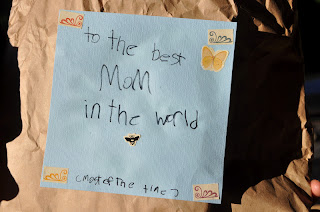 to the best
MoM
in the world
(Most of The time)